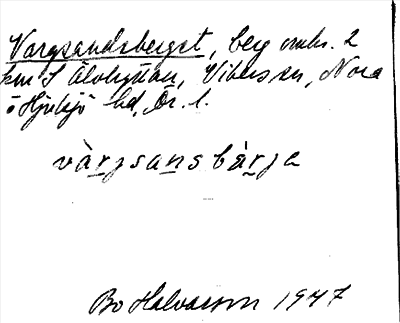 Vargsandsberget, berg omkr. 2
km S Älvhyttan, Vikers sn, Nora
o Hjulsjö bd, Ör. l.
vàrjsansbàrja
Bo Halvarson 1947